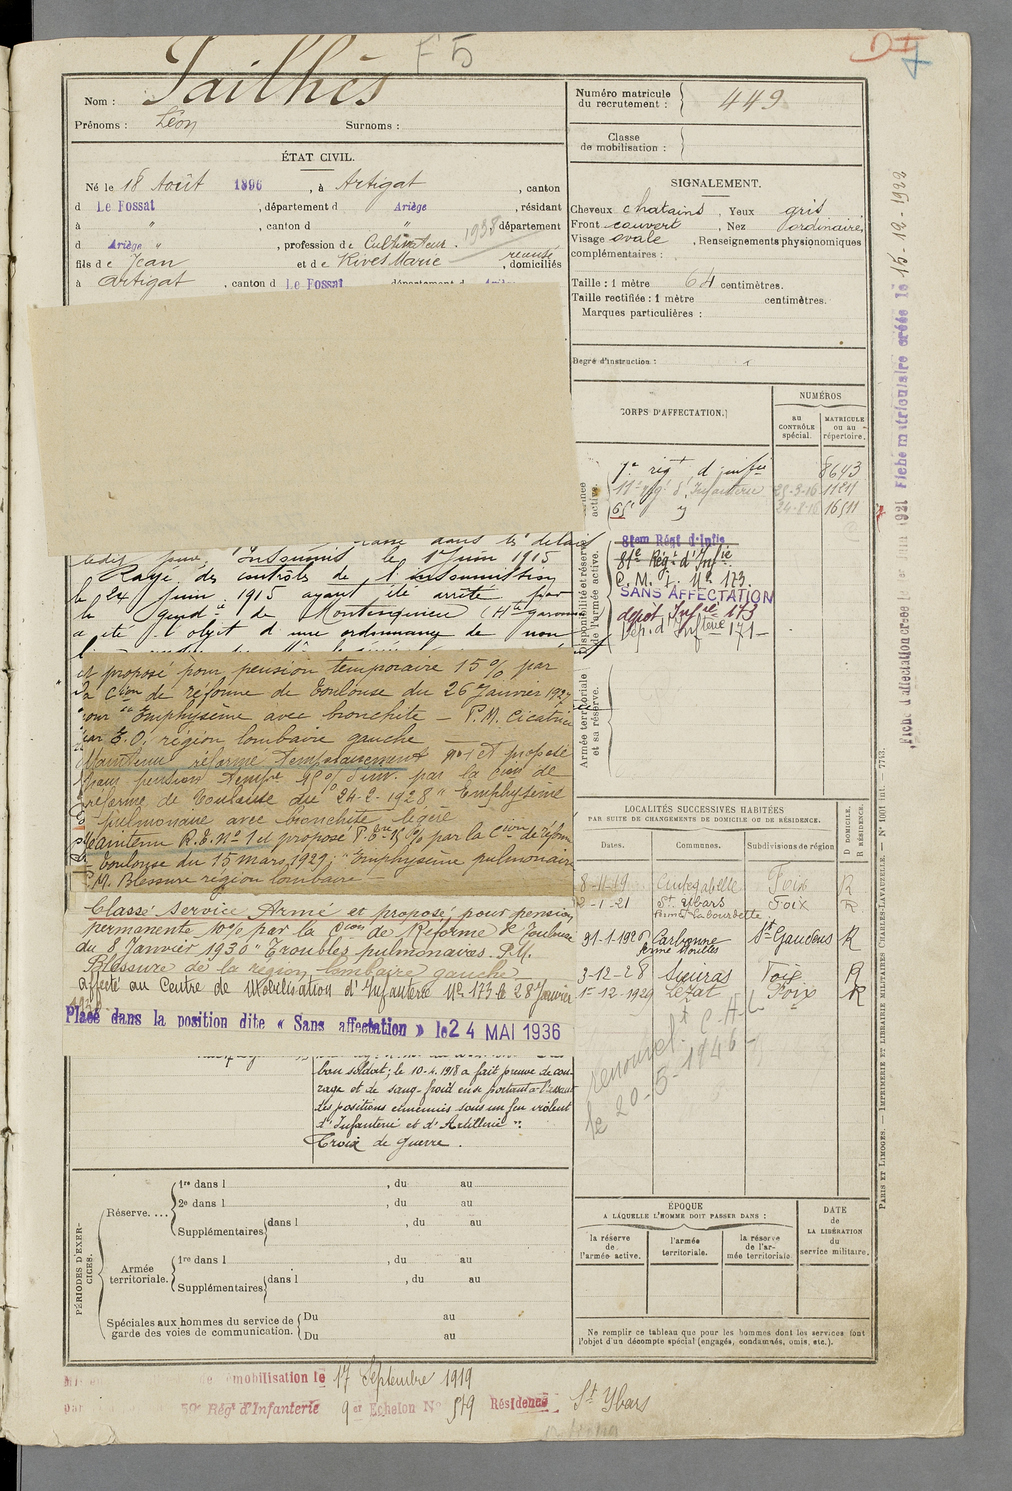 F 5
D I
7
Nom : Tailhès
Prénoms : Léon Surnoms :
Numéro matricule du recrutement : 449
Classe de mobilisation :
ÉTAT CIVIL.
Né le 18 Août 1896, à Artigat, canton
d Le Fossat, département d Ariège, résidant
à ", canton d ", département
d Ariège ", profession de Cultivateur.
1938 recensé
fils de Jean et de Rives Marie, domiciliés
à Artigat, canton d Le Fossat, département d
SIGNALEMENT.
Cheveux chatains, Yeux gris
Front couvert, Nez ordinaire,
Visage ovale, Renseignements physionomiques
complémentaires :
Taille : 1 mètre 64 centimètres.
Taille rectifiée : 1 mètre centimètres.
Marques particulières :
Degré d'instruction :
CORPS D'AFFECTATION.
NUMÉROS
au CONTRÔLE spécial.
MATRICULE OU AU répertoire.
active.
7e régt d'infie 8643
Infanterie
Disponibilité et réserve de l'armée active.
81em Régt d'Infie
81e Régt d'Infie
C. M. I. No 173.
SANS AFFECTATION
dépôt Infie 173
Dép. d'Infterie 171
Armée territoriale et sa réserve.
classé dans les délais
ledit jour. Insoumis le 1er Juin 1915
Rayé des contrôles de l'insoumission
le 24 Juin 1915 ayant été arrêté par
la gendie de Montesquieu (Hte Garonne
a été l'objet d'une ordonnance de non
et proposé pour pension temporaire 15% par
la Cion de réforme de Toulouse du 26 Janvier 1927
pour "Emphysème avec bronchite - P.M. Cicatrice
par E.O. région lombaire gauche
Maintenu réforme temporairement No 1 et proposé
pour pension tempre par la Cion de
réforme de Toulouse du 24-2-1928, "Emphysème
pulmonaire avec bronchite légère
Maintenu R.T. No 1 et proposé P. Tre 15% par la Cion de réforme
Toulouse du 15 mars 1929; "Emphysème pulmonaire
P.M. Blessure région lombaire -
Classé Service Armé et proposé pour pension
permanente 10% par la Cion de Réforme de Toulouse
du 8 Janvier 1930 "Troubles pulmonaires. P.M.
Blessure de la région lombaire gauche
affecté au Centre de Mobilisation d'Infanterie No 173 le 28 Janvier
Placé dans la position dite « Sans affectation » le 24 MAI 1936
bon soldat; le 10-4-1918 a fait preuve de cou-
rage et de sang froid en se portant à l'assaut
des positions ennemies sous un feu violent
d'Infanterie et d'Artillerie".
Croix de guerre.
LOCALITÉS SUCCESSIVES HABITÉES
PAR SUITE DE CHANGEMENTS DE DOMICILE OU DE RÉSIDENCE.
Dates. Communes. Subdivisions de région D DOMICILE. R RÉSIDENCE.
8-11-19 Cintegabelle Foix R
2-1-21 St Ybars Foix R
ferme Labourdette
31-1-1926 Carbonne St Gaudens R
3-12-28 Sieuras Foix R
1er-12-1929 Lézat Foix R
renouvelt C.H.L
le 20-5-1946
PÉRIODES D'EXERCICES.
Réserve....
1re dans l , du au
2e dans l , du au
Supplémentaires dans l , du au
Armée territoriale.
1re dans l , du au
Supplémentaires dans l , du au
Spéciales aux hommes du service de garde des voies de communication.
Du au
Du au
ÉPOQUE
A LAQUELLE L'HOMME DOIT PASSER DANS :
la réserve de l'armée active.
l'armée territoriale.
la réserve de l'armée territoriale
DATE DE LA LIBÉRATION du service militaire.
Ne remplir ce tableau que pour les hommes dont les services font
l'objet d'un décompte spécial (engagés, condamnés, omis, etc.).
mobilisation le 17 Septembre 1919
Régt d'Infanterie 9er Echelon No 519 Résidence St Ybars
PARIS ET LIMOGES. — IMPRIMERIE ET LIBRAIRIE MILITAIRES CHARLES-LAVAUZELLE. —
Fiche matriculaire créée le 15-12-1922
Fiche d'affectation créée le 1921